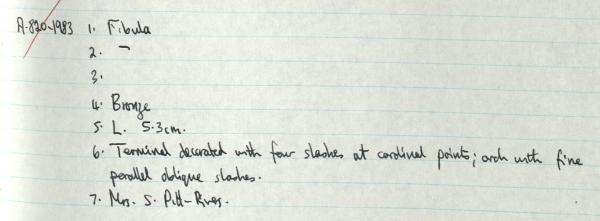 A.820-1983 1. Fibula
2. ¬
3.
4. Bronze
5. L. 5.3cm.
6. Terminal decorated with four slashes at cardinal points; arch with fine
parallel oblique slashes.
7. Mrs. S. Pitt-Rivers.